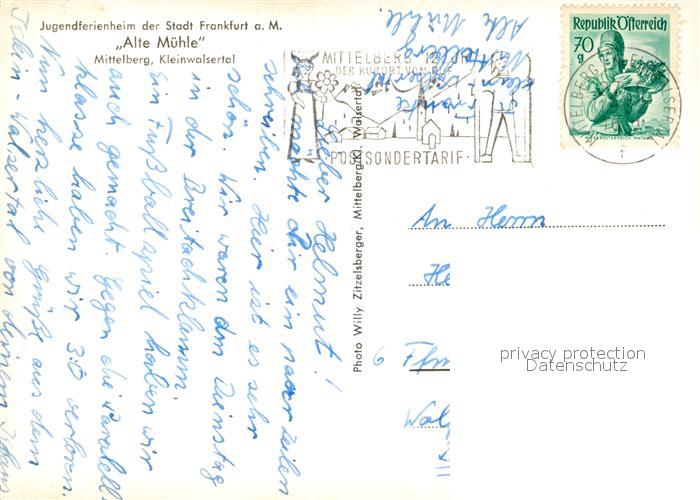 Jugendferienheim der Stadt Frankfurt a. M.
„Alte Mühle"
Mittelberg, Kleinwalsertal
MITTELBERG 1200 m
DER KURORT VON
POSTSONDERTARIF
Republik Österreich
70
g
NIEDERÖSTERREICH WACHAU
MITTELBERG
Photo Willy Zitzelsberger, Mittelberg/Kl. Walsertal
Alte Mühle.
Mittelberg
Lieber Helmut!
Ich möchte dir ein paar Zeilen
schreiben. Hier ist es sehr
schön. Wir waren am Dienstag
in der Breitachklamm.
Ein Fußballspiel haben wir
auch gemacht. Gegen die Paralell-
klasse haben wir 3:0 verloren.
Nun herzliche Grüße aus dem
Klein-walsertal von deinem
An Herrn
He
6 Ffm
Wal
privacy protection
Datenschutz